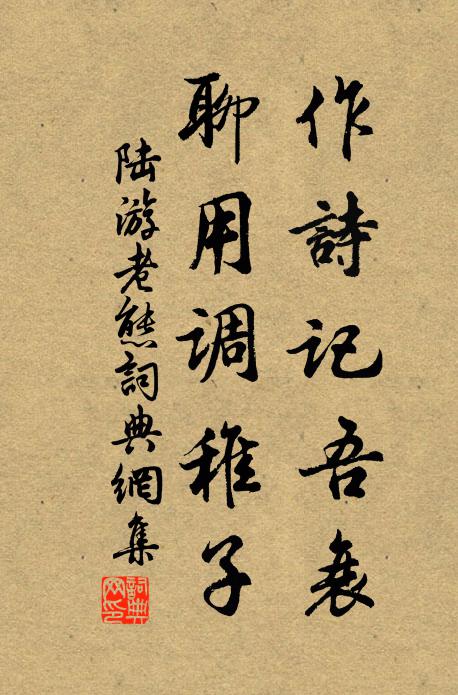 作詩記吾衰
聊用調稚子
陸游老態詞典網集
詞典网印